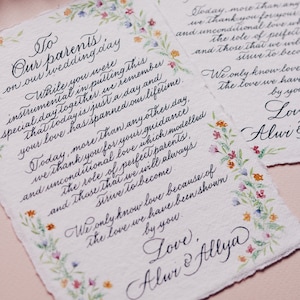 To
Our parents,
on our wedding day
While you were
instrumental in putting this
special day together we remember
that today is just a day and
your love has spanned our lifetime
Today, more than any other day,
we thank you for your guidance
and unconditional love which modelled
the role of perfect parents,
and those that we will always
strive to become
We only know love because of
the love we have been shown
by you
Love,
Alur & Allya
Today, more than any
we thank you for your
and unconditional love
the role of perfect
and those that we
strive to become
We only know love
the love we have
by you
Love,
Alur &